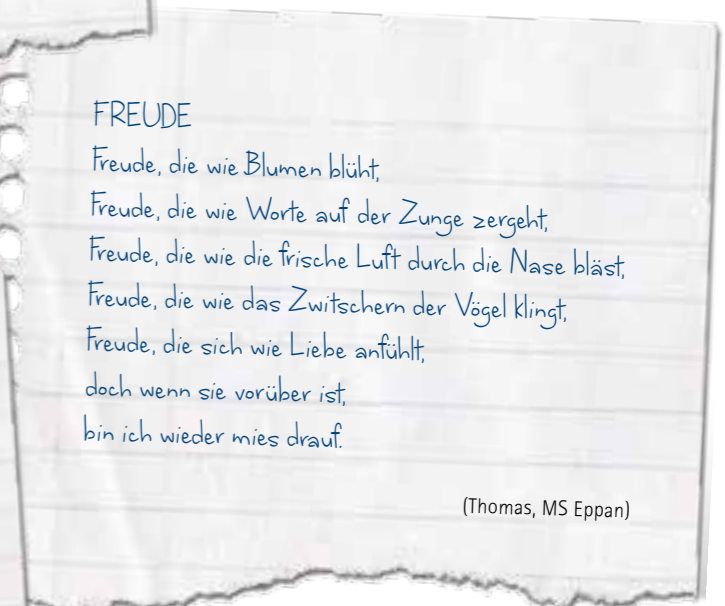 FREUDE
Freude, die wie Blumen blüht,
Freude, die wie Worte auf der Zunge zergeht,
Freude, die wie die frische Luft durch die Nase bläst,
Freude, die wie das Zwitschern der Vögel klingt,
Freude, die sich wie Liebe anfühlt,
doch wenn sie vorüber ist,
bin ich wieder mies drauf.
(Thomas, MS Eppan)